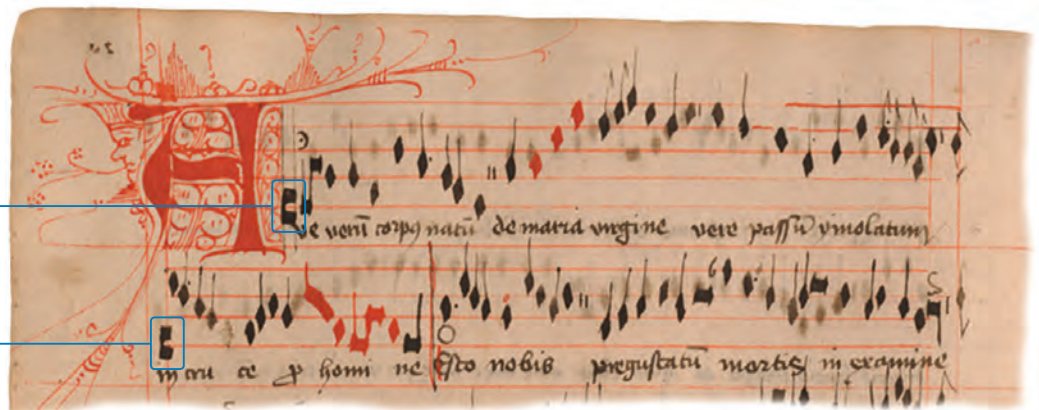 Ave verū corpꝯ natū de maria virgine vere passū ymolatum
in cru ce ꝓ homi ne Esto nobis pregustatū mortis in examine